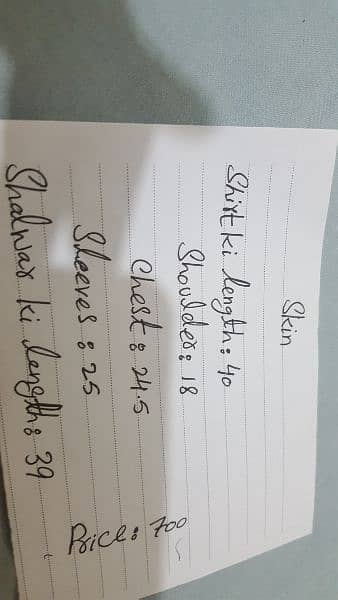 Skin
Shirt ki length: 40
Shoulder: 18
Chest: 24.5
Sleeves: 25
Shalwar ki length: 39
Price: 700